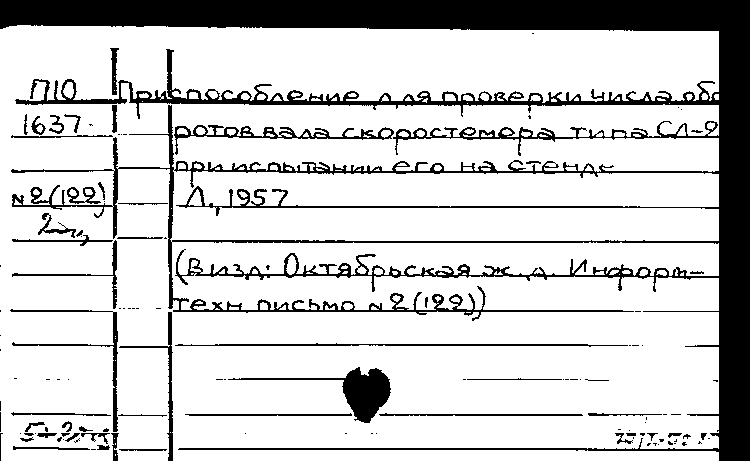 П10 Приспособление для проверки числа обо
1637 ротов вала скоростемера типа СЛ-2
при испытании его на стенде
№2(122) Л., 1957
2экз
(В изд: Октябрьская ж.д. Информ-
техн. письмо №2(122))